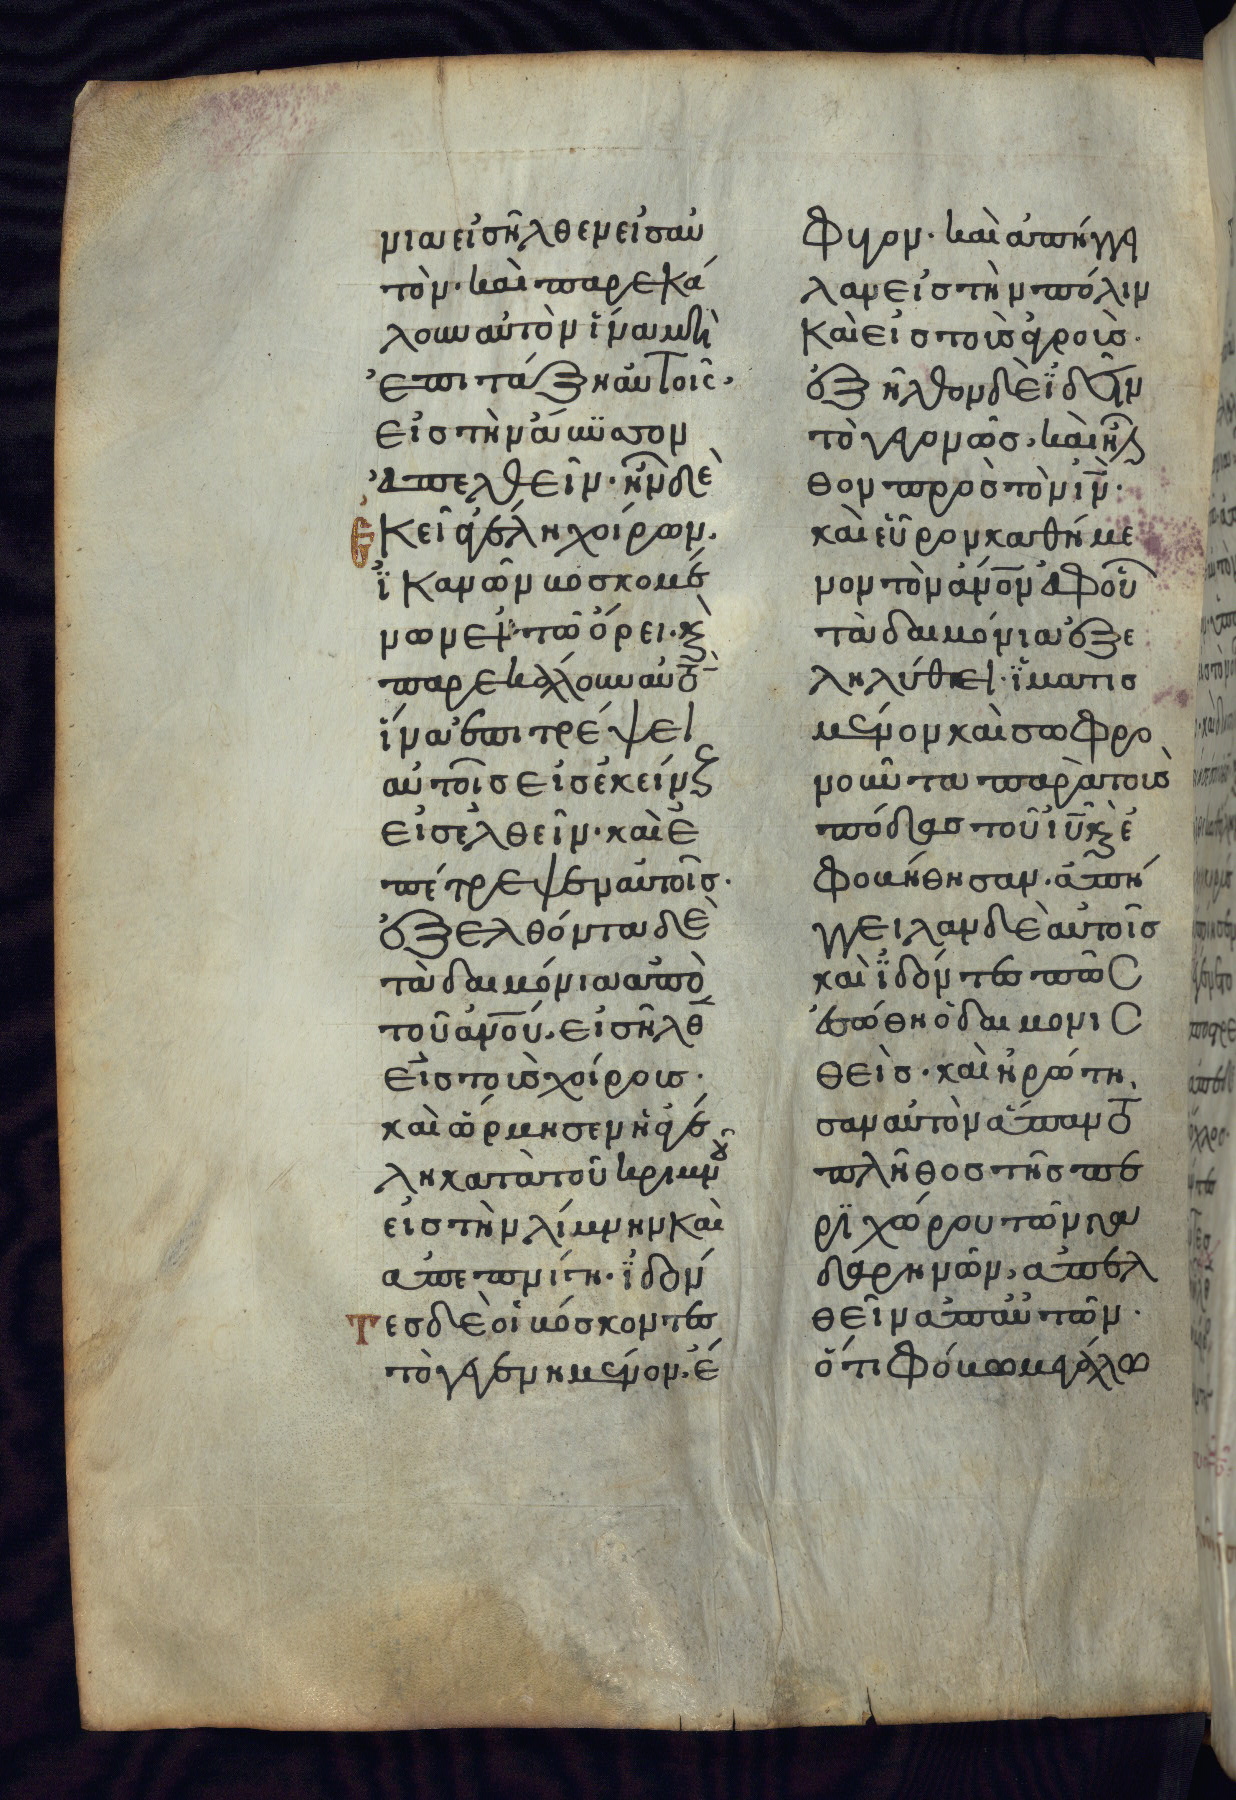 μια εἰσῆλθεν εἰς αὐ
τὸν· καὶ παρεκά
λουν αὐτὸν ἵνα μὴ
ἐπιτάξη αὐτοῖς·
εἰς τὴν ἄβυσσον
ἀπελθεῖν· ἦν δὲ
ἐκεῖ ἀγέλη χοίρων·
ϊκανῶν βοσκομέ
νων ἐν τῶ ὄρει· κ̀
παρεκάλουν αὐτὸ̅
ἵνα ἐπιτρέψει
αὐτοῖς εἰς ἐκείνους
εἰσελθεῖν· καὶ ἐ
πέτρεψεν αὐτοῖς·
ἐξελθόντα δὲ
τὰ δαιμόνια ἀπὸ
τοῦ ἀν̅ου̅· εἰσῆλθ̅
εἰς τοὺς χοίρους·
καὶ ὥρμησεν ἡ ἀγέ
λη κατὰ τοῦ κρημνοῦ
εἰς τὴν λίμνην καὶ
ἀπεπνίγη· ϊδόν
τες δὲ οἱ βόσκοντες
τὸ γεγενημένον· ἔ
φυγον· καὶ ἀπήγγει
λαν εἰς τὴν πόλιν
καὶ εἰς τοὺς ἀγρούς·
ἐξῆλθον δὲ ϊδεῖν
τὸ γεγονὼς· καὶ ἦλ
θον πρὸς τὸν ι̅ν̅·
καὶ εὗρον καθήμε
νον τὸν ἄν̅ον̅ ἀφ' οὗ
τὰ δαιμόνια ἐξε
ληλύθει· ϊματισ
μένον καὶ σωφρο
νοῦντα παρὰ τοὺς
πόδας τοῦ ι̅υ̅ κ̀ ἐ
φοβήθησαν· ἀπή
γγειλαν δὲ αὐτοῖς
καὶ ϊδόντες πῶς
ἐσώθη ὁ δαιμονισ
θεὶς· καὶ ἠρώτη
σαν αὐτὸν ἅπαν τὸ
πλῆθος τῆς πε
ριχώρου τῶν γα
δαρηνῶν, ἀπελ
θεῖν ἀπ' αὐτῶν·
ὅτι φόβω μεγάλω